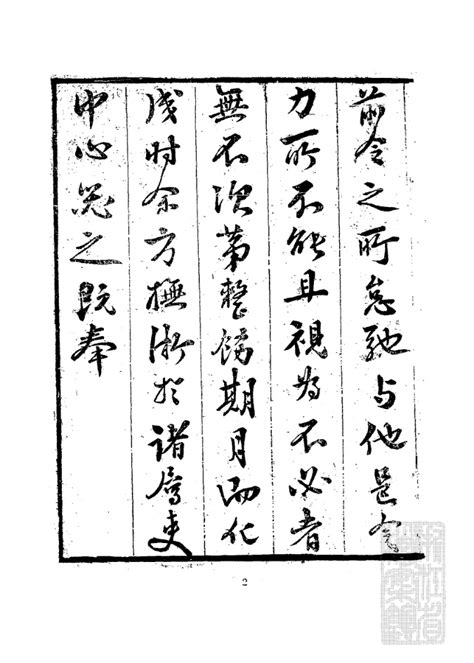 前令之所怠弛与他邑令
力所不能且視為不必者
無不次第整飭期月而化
成时余方撫浙於諸屬吏
中心器之既奉
2